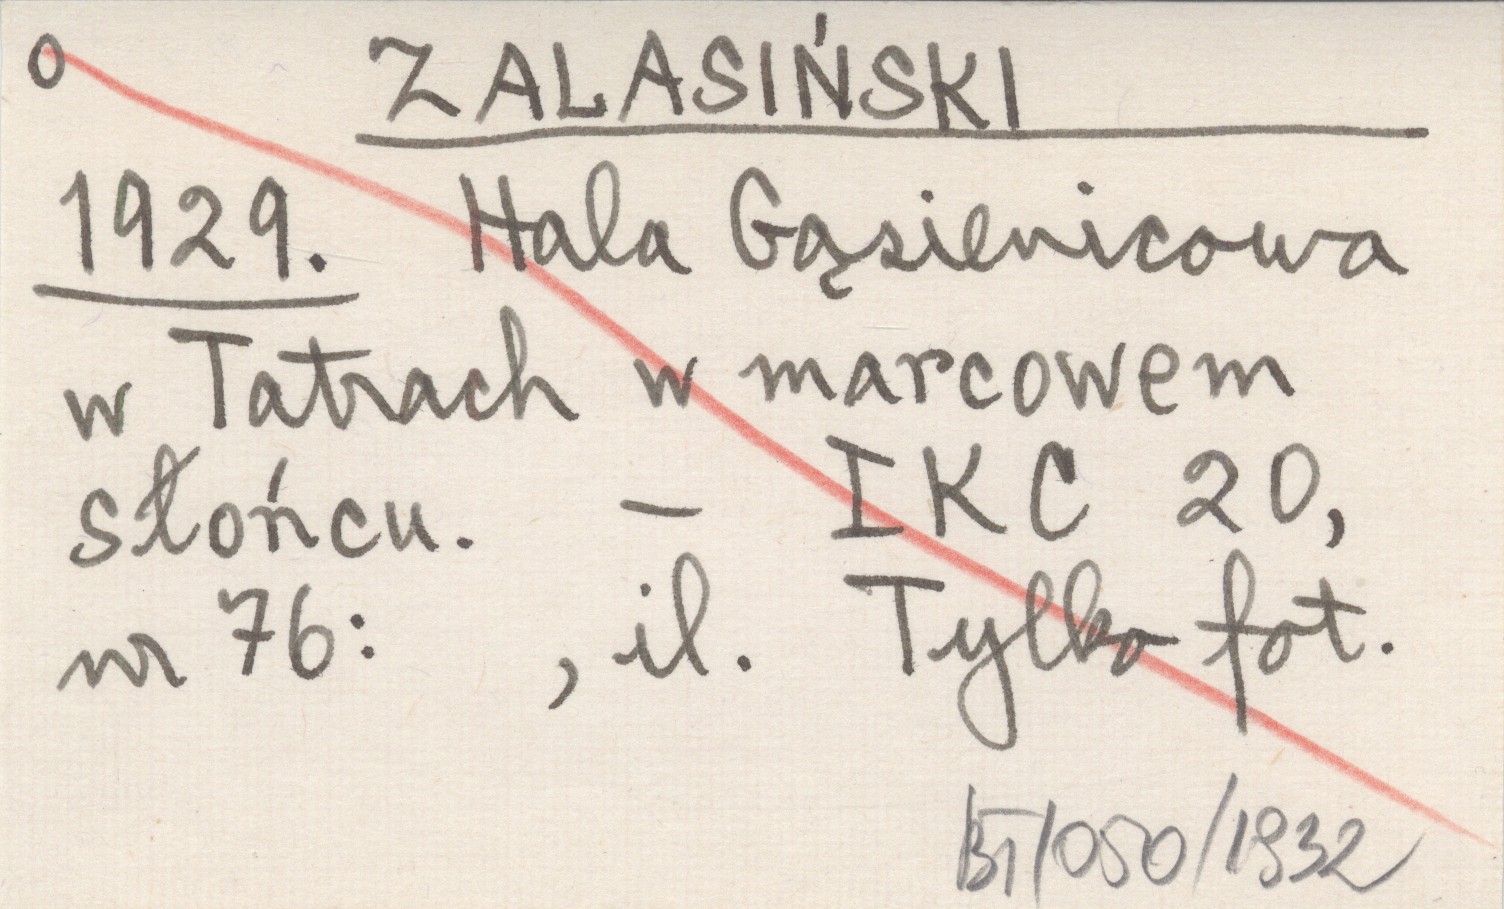 o ZALASIŃSKI
1929. Hala Gąsienicowa
w Tatrach w marcowem
słońcu. – IKC 20,
nr 76: , il. Tylko fot.
BT/050/1932